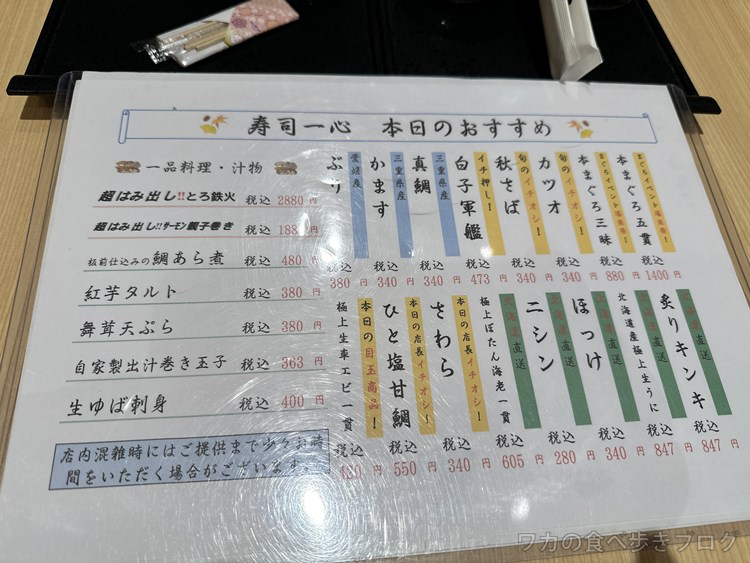 寿司一心 本日のおすすめ
一品料理・汁物
超はみ出し!!とろ鉄火 税込 2880 円
超はみ出し!!サーモン親子巻き 税込 円
板前仕込みの鯛あら煮 税込 480 円
紅芋タルト 税込 380 円
舞茸天ぷら 税込 380 円
自家製出汁巻き玉子 税込 363 円
生ゆば刺身 税込 400 円
店内混雑時にはご提供まで少々お時
間をいただく場合がございます
まぐろイベント
本まぐろ五貫 税込 1400 円
まぐろイベント
本まぐろ三昧 税込 880 円
旬のイチオシ!
カツオ 税込 340 円
旬のイチオシ!
秋さば 税込 340 円
イチ押し!
白子軍艦 税込 473 円
三重県産
真鯛 税込 340 円
三重県産
かます 税込 340 円
愛媛産
ぶり 税込 380 円
直送
炙りキンキ 税込 847 円
直送
北海道産極上生うに 税込 847 円
直送
ほっけ 税込 340 円
直送
ニシン 税込 280 円
直送
極上ぼたん海老一貫 税込 605 円
本日の店長イチオシ!
さわら 税込 340 円
本日の店長イチオシ!
ひと塩甘鯛 税込 550 円
本日の目玉商品!
極上生車エビ一貫 税込 480 円
ワカの食べ歩きブログ